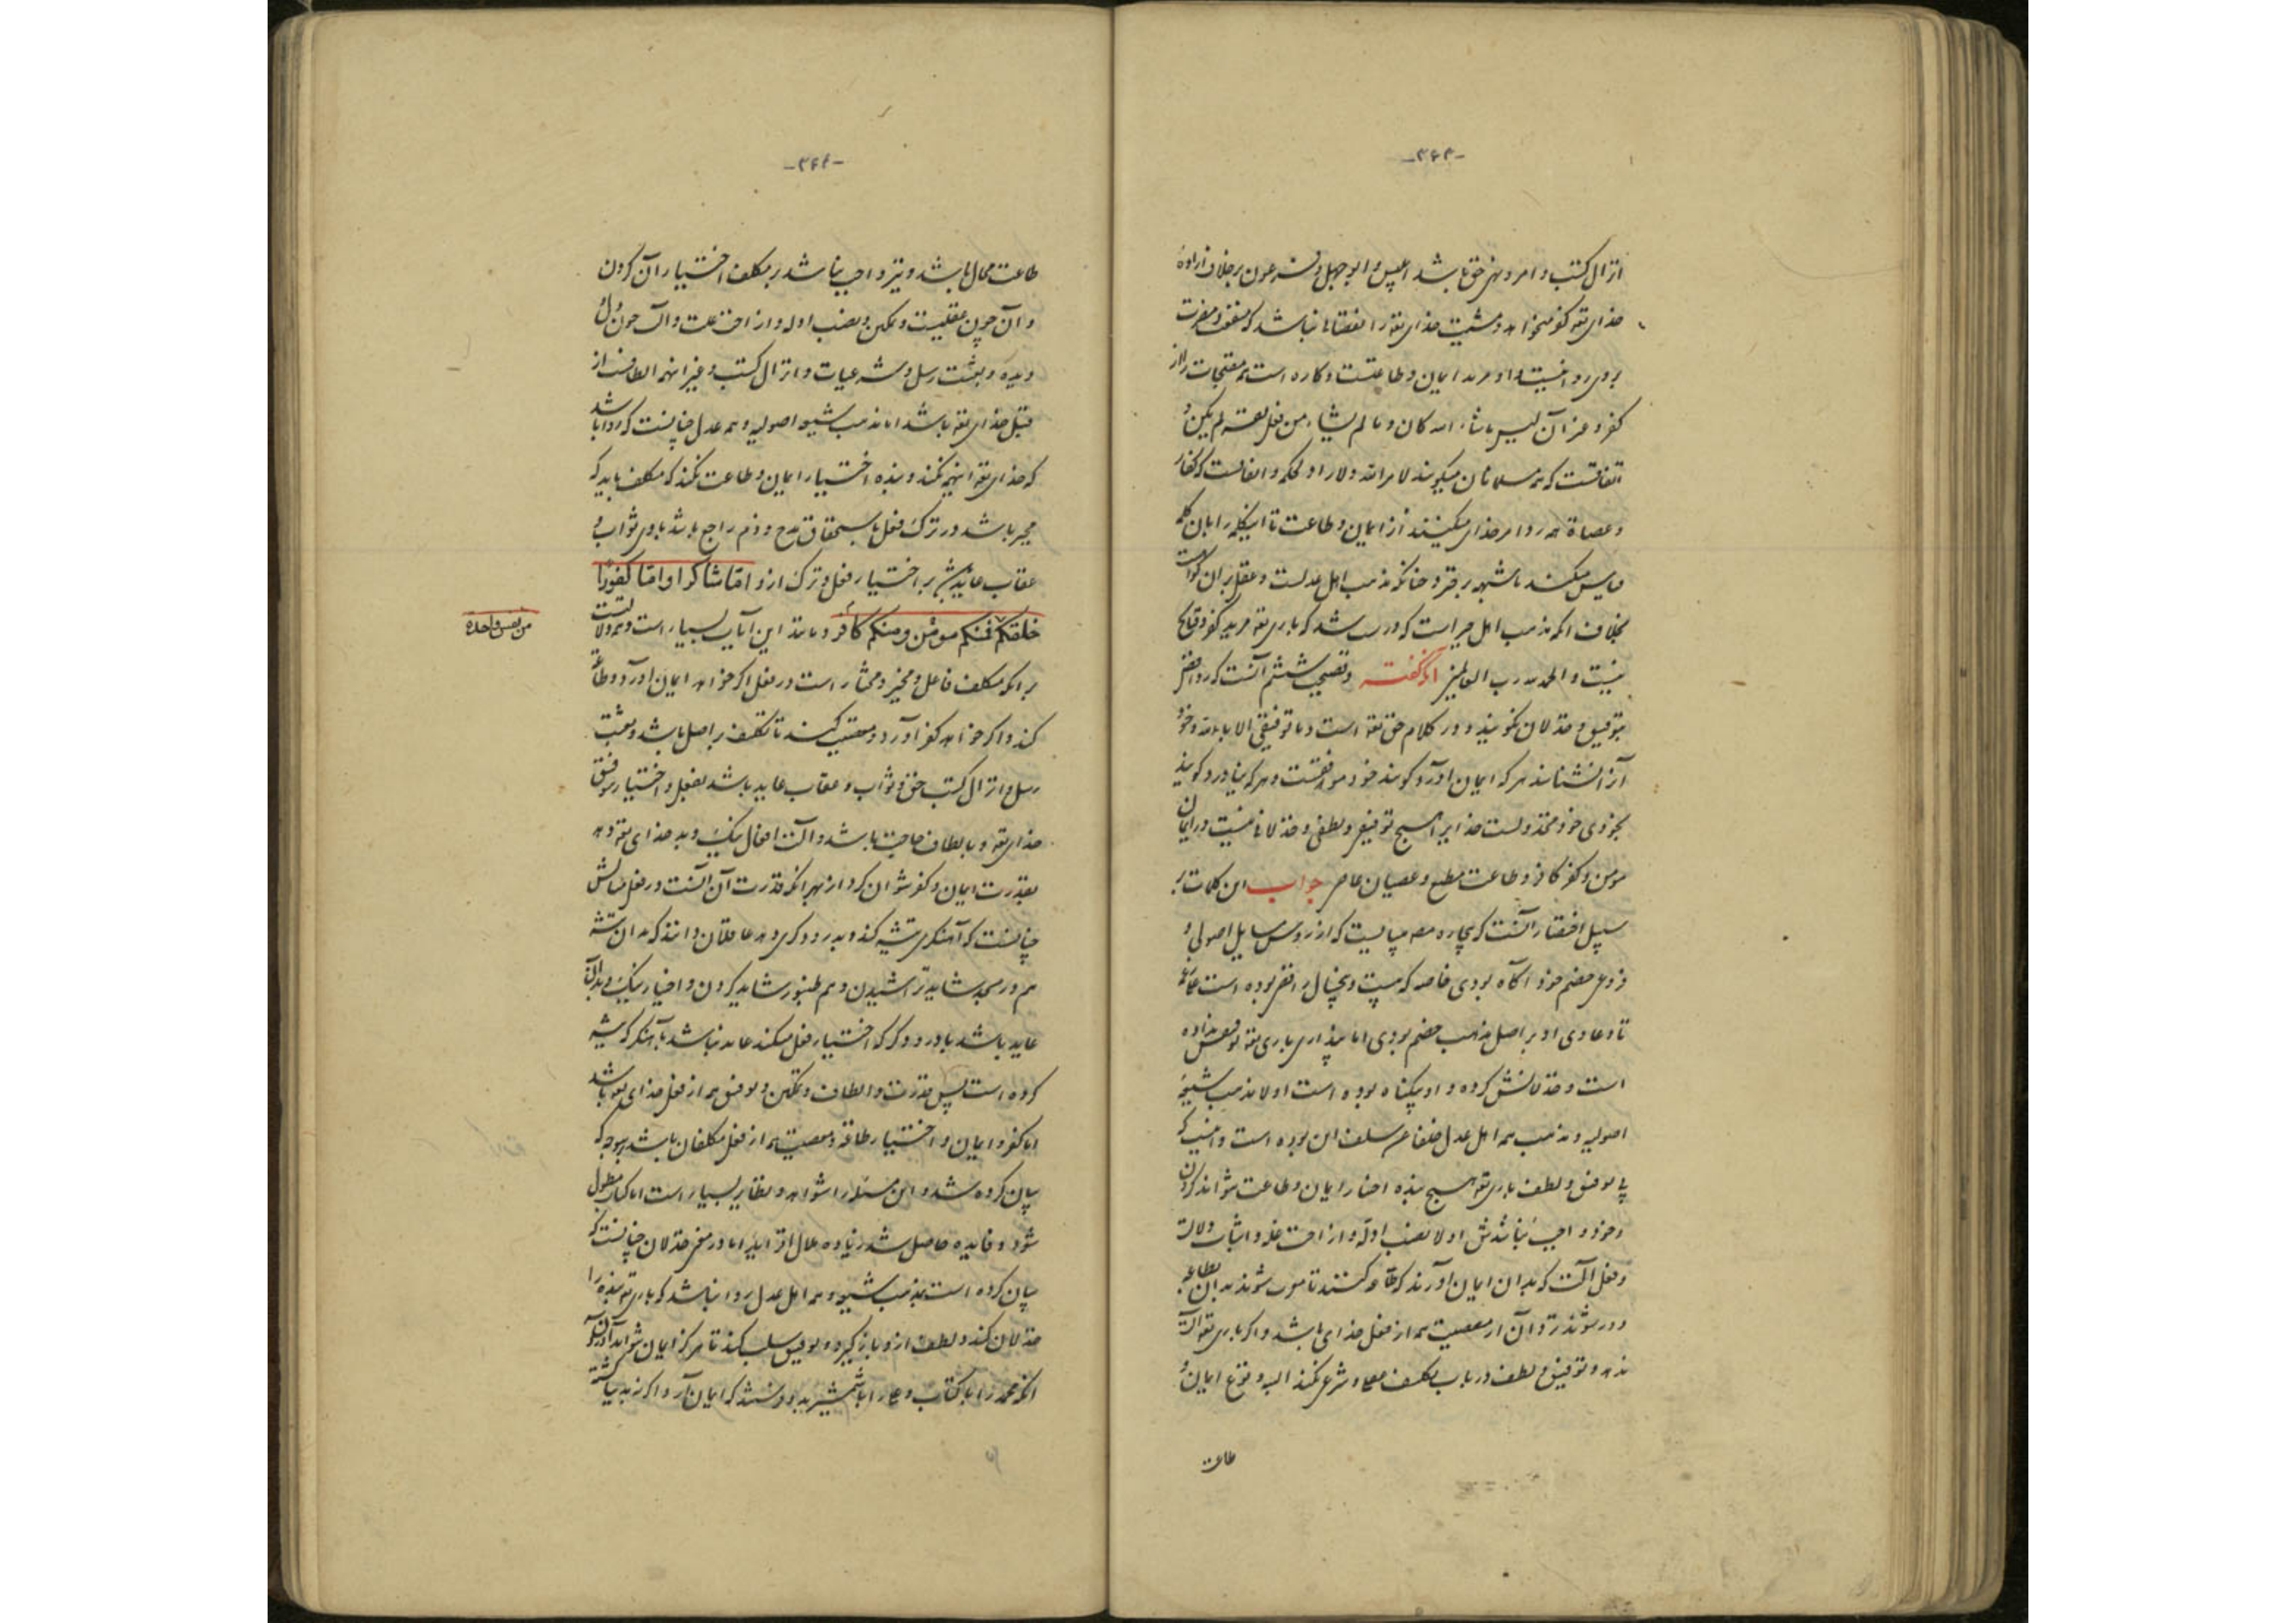 -۳۶۳-
انزال کتب و امر و نهی حق باشد ابلیس و ابوجهل و فرعون بر خلاف ارادهٔ
خدای تعه کفر میخواهد و مشیت خدای تعه را نقصانی نباشد که منفعت و مضرت
بر وی روا نیست و او مرید ایمان و طاعتست و کاره است همه مقبحات را از
کفر و غیر آن لیس ماشاء الله کان و ما لم یشاء من فعل نفسه لم یکن و
اتفاقست که همه مسلمانان میگویند لا مرد لامر الله و لا راد لحکمه و اتفاقست که کفار
و عصاة همه رد امر خدای میکنند از ایمان و طاعت تا این کلمه را بان کلمه
قیاس میکند تا شبهه برخیزد چنانکه مذهب اهل عدلست و عقل بران گواست
بخلاف آنکه مذهب اهل جبر است که درست شد که باری تعه مرید کفر و قبایح
نیست و الحمد لله رب العالمین آنکه گفته و فضیحت ششم آنست که روافض
بتوفیق و خذلان نگویند و در کلام حق تعه است و ما توفیقی الا بالله و خود
آنرا نشناسند هر که ایمان آورد گویند خود موافقست و هر که نیاورد گویند
بخودی خود مخذولست خدایرا هیچ توفیق و لطفی و خذلانی نیست در ایمان
مومن و کفر کافر و طاعت مطیع و عصیان عاصی جواب این کلمات بر
سبیل اختصار آنست که بیچاره مصنف بایست که از دروس مسایل اصولی و
فروعی خصم خود آگاه بودی خاصه که بیست و پنج سال رافضی بوده است
تا دعاوی او بر اصل مذهب خصم بودی اما پنداری باری تعه توفیقش نداده
است و خذلانش کرده و او بیگناه بوده است اولا مذهب شیعهٔ
اصولیه و مذهب همه اهل عدل خلفا عن سلف آن بوده است و اینست که
بی توفیق و لطف باری تعه هیچ بنده اختیار ایمان و طاعت نتواند کردن
و خود واجب نباشدش اولا نصب ادله و ازاحت عله و اثبات دلالت
و فعل آلت که بدان ایمان آورند که طاعه کنند تا مقرب شوند بدان بطاعه
و دور شوند از معصیت همه از فعل خدای باشد و اگر باری تعه آلت
ندهد و توفیق و لطف در باب تکلیف عقلی و شرعی نکند البته وقوع ایمان و
طاعت
-۳۶۴-
طاعت محال باشد و نیز واجب نباشد بر مکلف اختیار آن کردن
و آن چون عقلیست و تمکین و نصب ادله و ازاحت علت و آلت چون دل
و دیده و بعثت رسل و شرعیات و انزال کتب و غیر اینهمه الطافست از
قبل خدای تعه باشد اما مذهب شیعه اصولیه و همه عدل چنانست که روا باشد
که خدای تعه اینهمه بکند و بنده اختیار ایمان و طاعت نکند که مکلف باید که
مخیر باشد در ترک و فعل تا استحقاق مدح و ذم راجع باشد با وی و ثواب و
عقاب عایدش بر اختیار فعل و ترک ازو اما شاکرا و اما کفورا
خلقکم فمنکم مومن و منکم کافر و مانند این آیات بسیار است و همه دلالتست
من نفس واحده
بر آنکه مکلف فاعل و مخیر و مختار است در فعل اگر خواهد ایمان آورد و طاعة
کند و اگر خواهد کفر آورد و معصیت کند تا تکلیف بر اصل باشد و بعثت
رسل و انزال کتب حق و ثواب و عقاب عاید باشد بفعل و اختیار موفق
خدای تعه و بالطاف حاجت باشد و آلت افعال نیک و بد خدای تعه دهد
بقدرت ایمان و کفر توان کرد از بهر آنکه قدرت آن آلتست در فعل مثالش
چنانست که آهنگری تیشه کند و بدرودگری دهد عاقلان دانند که بدان تیشه
هم در مسجد شاید تراشیدن و هم طنبور شاید کردن و اختیار نیک و بد آن
عاید باشد با درودگر که اختیار فعل میکند عاید نباشد با آهنگر که تیشه
کرده است پس قدرت و الطاف و تمکین و توفیق همه از فعل خدای تعه باشد
اما کفر و ایمان و اختیار طاعة و معصیت همه از فعل مکلفان باشد بوجهی که
بیان کرده شد و این مسئله را شواهد و نظایر بسیار است اما کتاب مطول
شود و فایده حاصل شد زیاده ملال افزاید اما در معنی خذلان چنانست که
بیان کرده است بمذهب شیعه و همه اهل عدل روا نباشد که باری تعه بنده را
خذلان کند و لطف ازو بازگیرد و توفیق سلب کند تا هرگز ایمان نتواند آوردن
آنکه محمد را با کتاب و علی را با شمشیر بدو فرستد که ایمان آر و اگر نه بدیها کشته